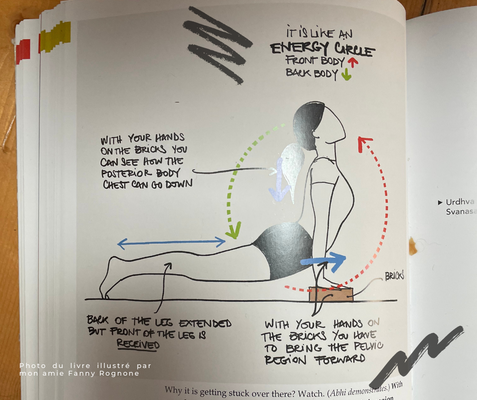 IT IS LIKE AN
ENERGY CIRCLE
FRONT BODY
BACK BODY
WITH YOUR HANDS
ON THE BRICKS YOU
CAN SEE HOW THE
POSTERIOR BODY
CHEST CAN GO DOWN
▸ Urdhva
Svanas
BRICKS
BACK OF THE LEG EXTENDED
BUT FRONT OF THE LEG IS
RECEIVED
WITH YOUR HANDS ON
THE BRICKS YOU HAVE
TO BRING THE PELVIC
REGION FORWARD
Photo du livre illustré par
mon amie Fanny Rognone
Why it is getting stuck over there? Watch. (Abhi demonstrates) With